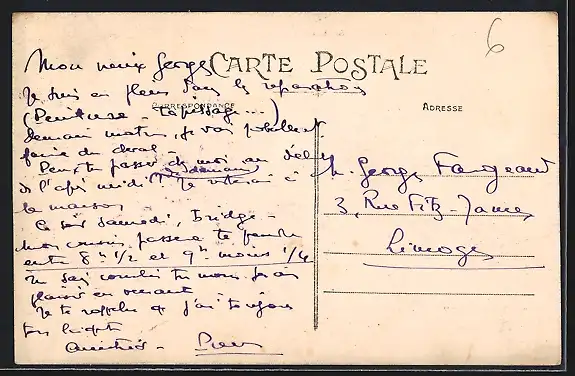 6
CARTE POSTALE
CORRESPONDANCE
ADRESSE
Mon vieux Georges
Je suis en plein dans les réparations
(Peinture - tapissage...)
Demain matin, je vais probablement
faire du cheval -
Peux-tu passer chez moi au début
de l'après midi demain Je t'attendrai à
la maison
Ce soir samedi, bridge -
Mon cousin passera te prendre
entre 8h 1/2 et 9h moins 1/4
Tu sais combien tu nous feras
plaisir en venant
Je te rappelle que j'ai toujours
ton
Amitiés -
M. George Fargeaud
3, Rue Fitz-James
Limoges